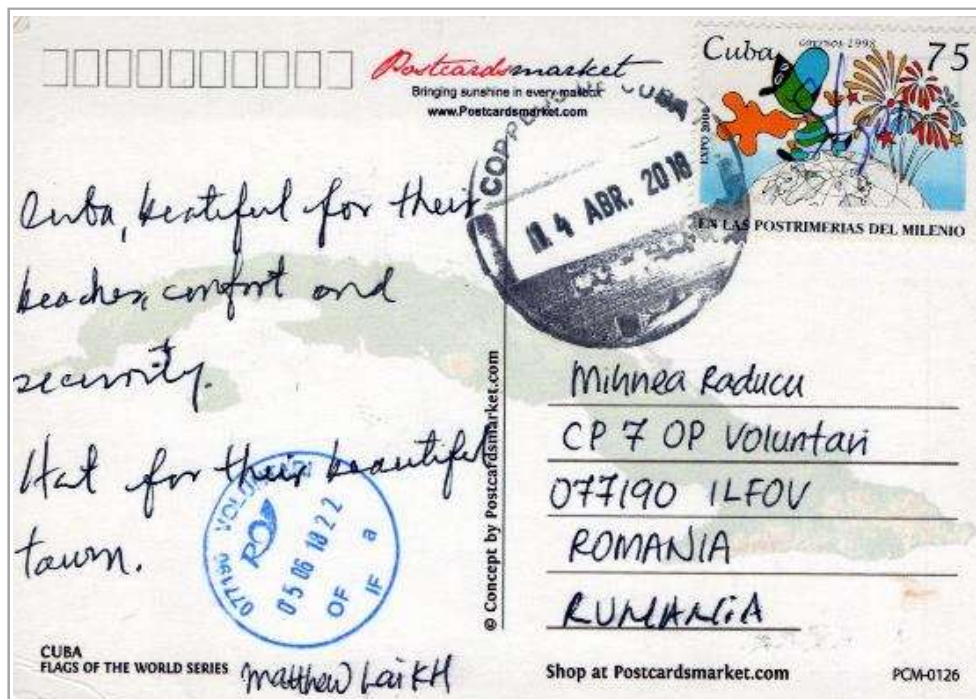 Postcardsmarket
Bringing sunshine in every mailbox
www.Postcardsmarket.com
Cuba correos 1998 75
EXPO 2000
EN LAS POSTRIMERIAS DEL MILENIO
CORREOS DE CUBA
4 ABR. 2018
Cuba, beatiful for their
beaches, confort and
security.
Hat for their beautiful
tawn.
077190 VOLUNTARI
05 06 18 22
OF IF a
© Concept by Postcardsmarket.com
Mihnea Raducu
CP 7 OP Voluntari
077190 ILFOV
ROMANIA
RUMANIA
CUBA
FLAGS OF THE WORLD SERIES
Matthew Lai KH
Shop at Postcardsmarket.com
PCM-0126